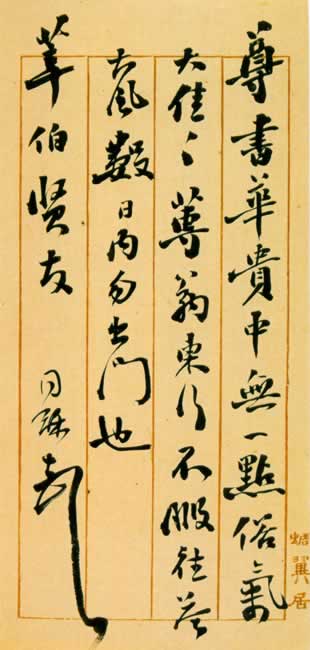 尊書華貴中無一點俗氣
大佳〻尊翁東行不暇往荅
大風數日內勿出門也
莘伯賢友 同龢
翼居